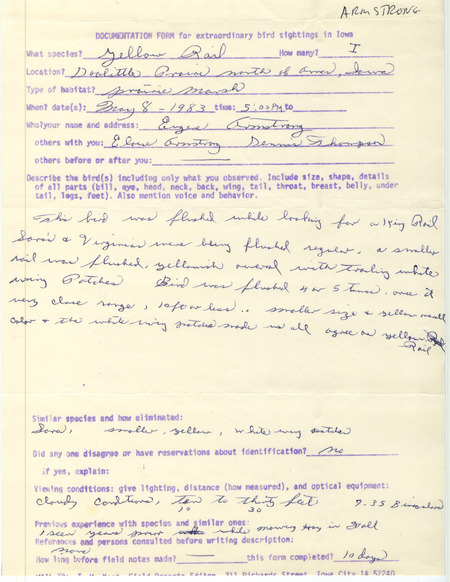 ARMSTRONG
DOCUMENTATION FORM for extraordinary bird sightings in Iowa
What species? Yellow Rail How many? I
Location? Doolittle Prairie north of Ames, Iowa
Type of habitat? prairie marsh
When? date(s): May 8 - 1983 time: 5:00 PM to
Who? your name and address: Eugene Armstrong
others with you: Eloise Armstrong Dennis Thompson
others before or after you:
Describe the bird(s) including only what you observed. Include size, shape, details
of all parts (bill, eye, head, neck, back, wing, tail, throat, breast, belly, under
tail, legs, feet). Also mention voice and behavior.
This bird was flushed while looking for a King Rail
Sora's & Virginias were being flushed regular, a smaller
rail was flushed, yellowish overall with trailing white
wing Patches Bird was flushed 4 or 5 times, once at
very close range, 10 ft or less.. smaller size & yellow overall
color & the white wing patches made us all agree on yellow
Rail
Similar species and how eliminated:
Sora, smaller, yellow, white wing patches
Did any one disagree or have reservations about identification? no
if yes, explain:
Viewing conditions: give lighting, distance (how measured), and optical equipment:
Cloudy Conditions, ten to thirty feet 7-35 Binoculars
10 30
Previous experience with species and similar ones:
1 seen years prior while mowing hay in Fall
References and persons consulted before writing description:
none
How long before field notes made? this form completed? 10 days
MAIL TO: T. H. Kent, Field Reports Editor, 211 Richards Street, Iowa City IA 52240